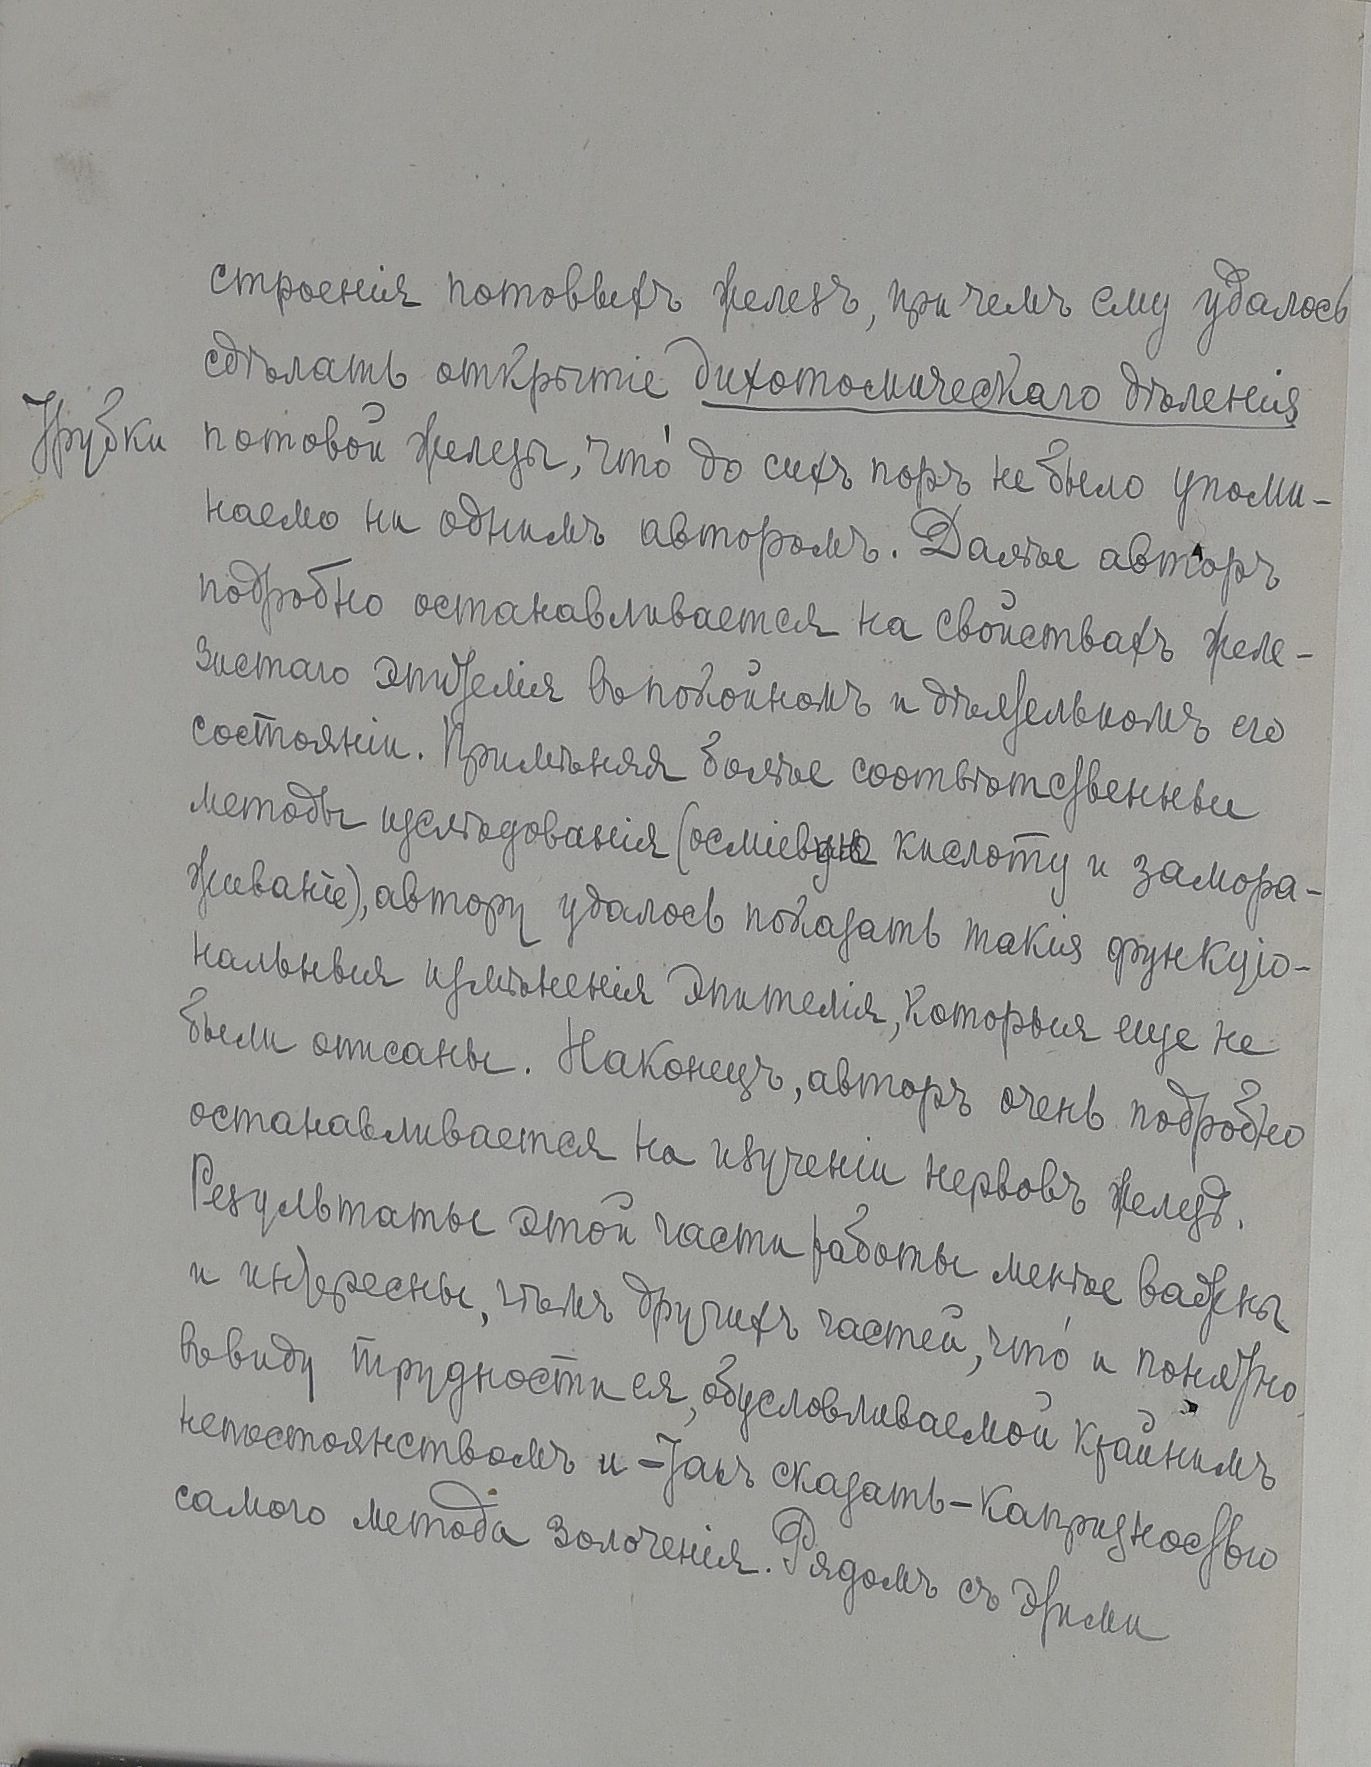 строенія потовыхъ железъ, при чемъ ему удалось
сдѣлать открытіе дихотомическаго дѣленія
трубки потовой железы, что́ до сихъ поръ не было упоми-
наемо ни однимъ авторомъ. Далѣе авторъ
подробно останавливается на свойствахъ желе-
зистаго эпителія въ покойномъ и дѣятельномъ его
состояніи. Примѣняя болѣе соотвѣтственные
методы изслѣдованія (осміевую кислоту и замора-
живаніе), автору удалось показать такія функціо-
нальныя измѣненія эпителія, которыя еще не
были описаны. Наконецъ, авторъ очень подробно
останавливается на изученіи нервовъ железъ.
Результаты этой части работы менѣе важны
и интересны, чѣмъ другихъ частей, что́ и понятно
въ виду трудности ея, обусловливаемой крайнимъ
непостоянствомъ и – такъ сказать – капризностью
самого метода золоченія. Рядомъ съ этими